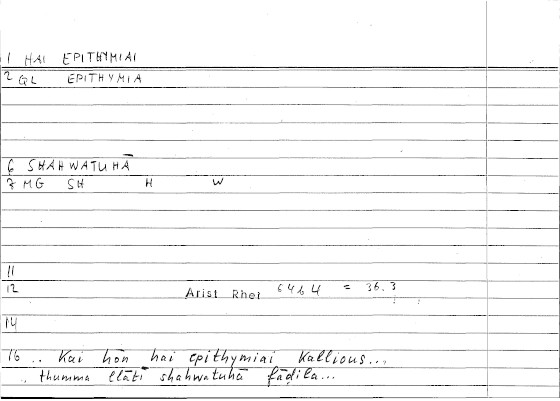 1 HAI EPITHYMIAI
2 GL EPITHYMIA
6 SHAHWATUHĀ
7 MG SH H W
11
12 Arist Rhet 6464 = 36.3
14
16 .. Kai hōn hai epithymiai Kallious...
.. thumma llātī shahwatuhā fāḍila...